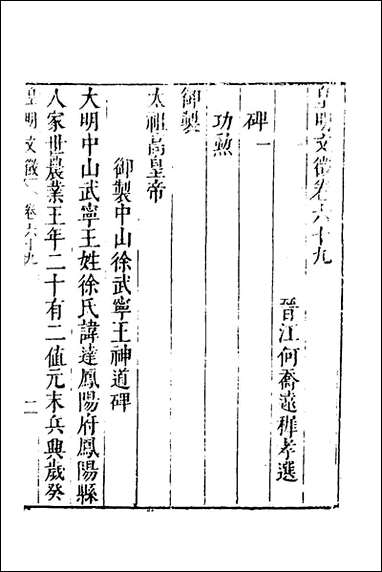 皇明文徵卷六十九
晉江何喬遠穉孝選
碑一
功勲
御製
太祖高皇帝
御製中山徐武寧王神道碑
大明中山武寧王姓徐氏諱達鳳陽府鳳陽縣
人家世農業王年二十有二值元末兵興歲癸
皇明文徵 卷六十九 一